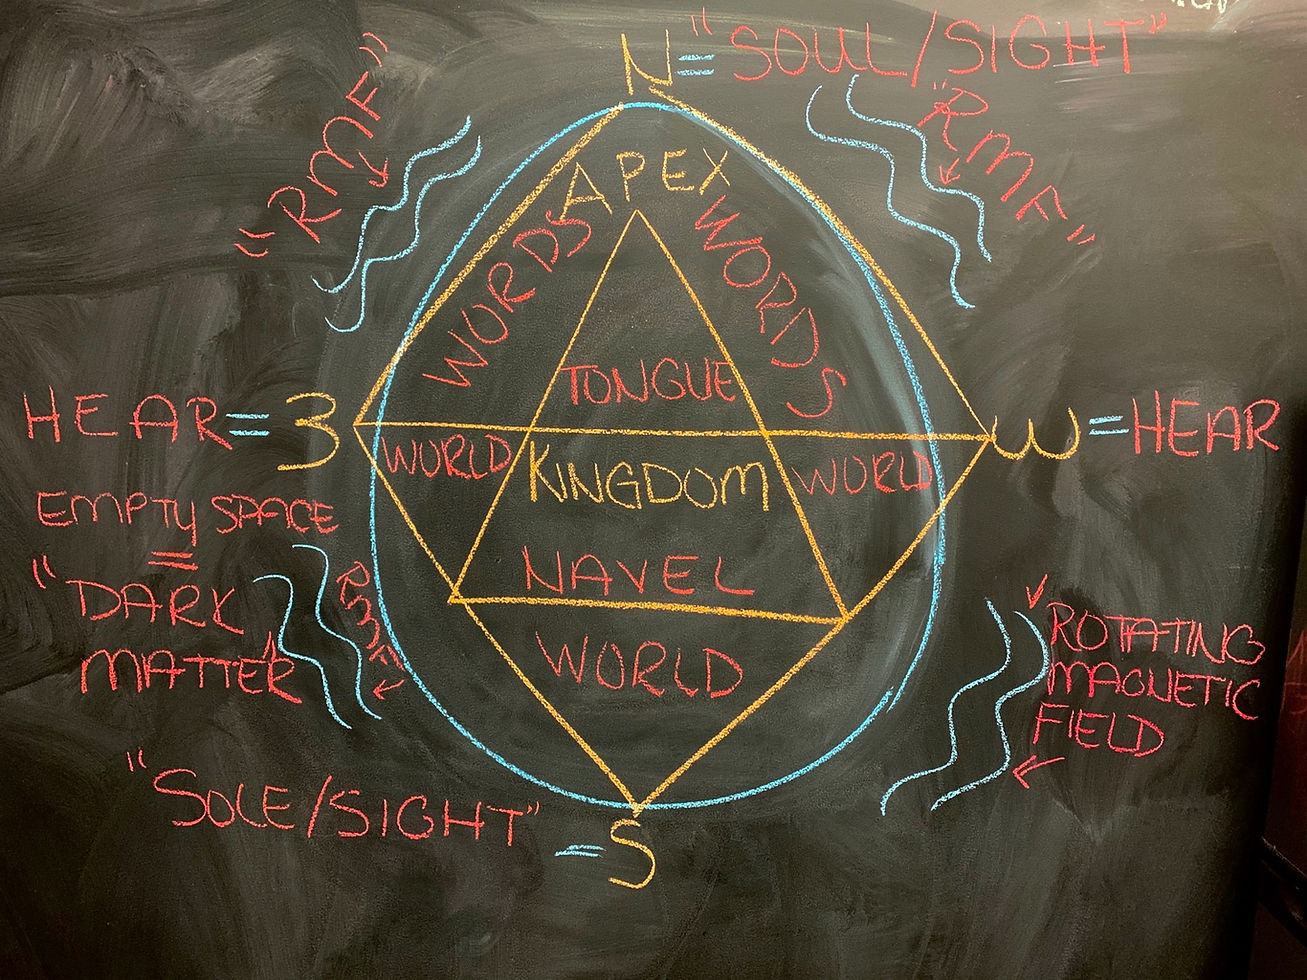 N = "SOUL/SIGHT"
"RMF"
"RMF"
APEX
WORDS
WORDS
TONGUE
HEAR = 3
W = HEAR
WORLD
KINGDOM
WORLD
EMPTY SPACE
=
"DARK
MATTER"
RMF
NAVEL
WORLD
ROTATING
MAGNETIC
FIELD
"SOLE/SIGHT" = S